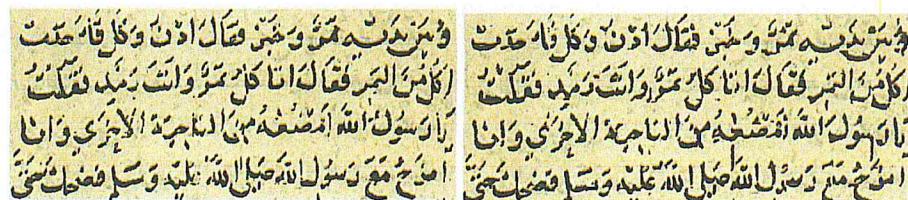 وبين يديه تمر وخبز فقال ادن وكل فاخذت
اكل من التمر فقال اتاكل تمرا وانت رمد فقلت
يا رسول الله امضغه من الناحية الاخرى وانا
امزح مع رسول الله صلى الله عليه وسلم فضحك حتى
وبين يديه تمر وخبز فقال ادن وكل فاخذت
اكل من التمر فقال اتاكل تمرا وانت رمد فقلت
يا رسول الله امضغه من الناحية الاخرى وانا
امزح مع رسول الله صلى الله عليه وسلم فضحك حتى